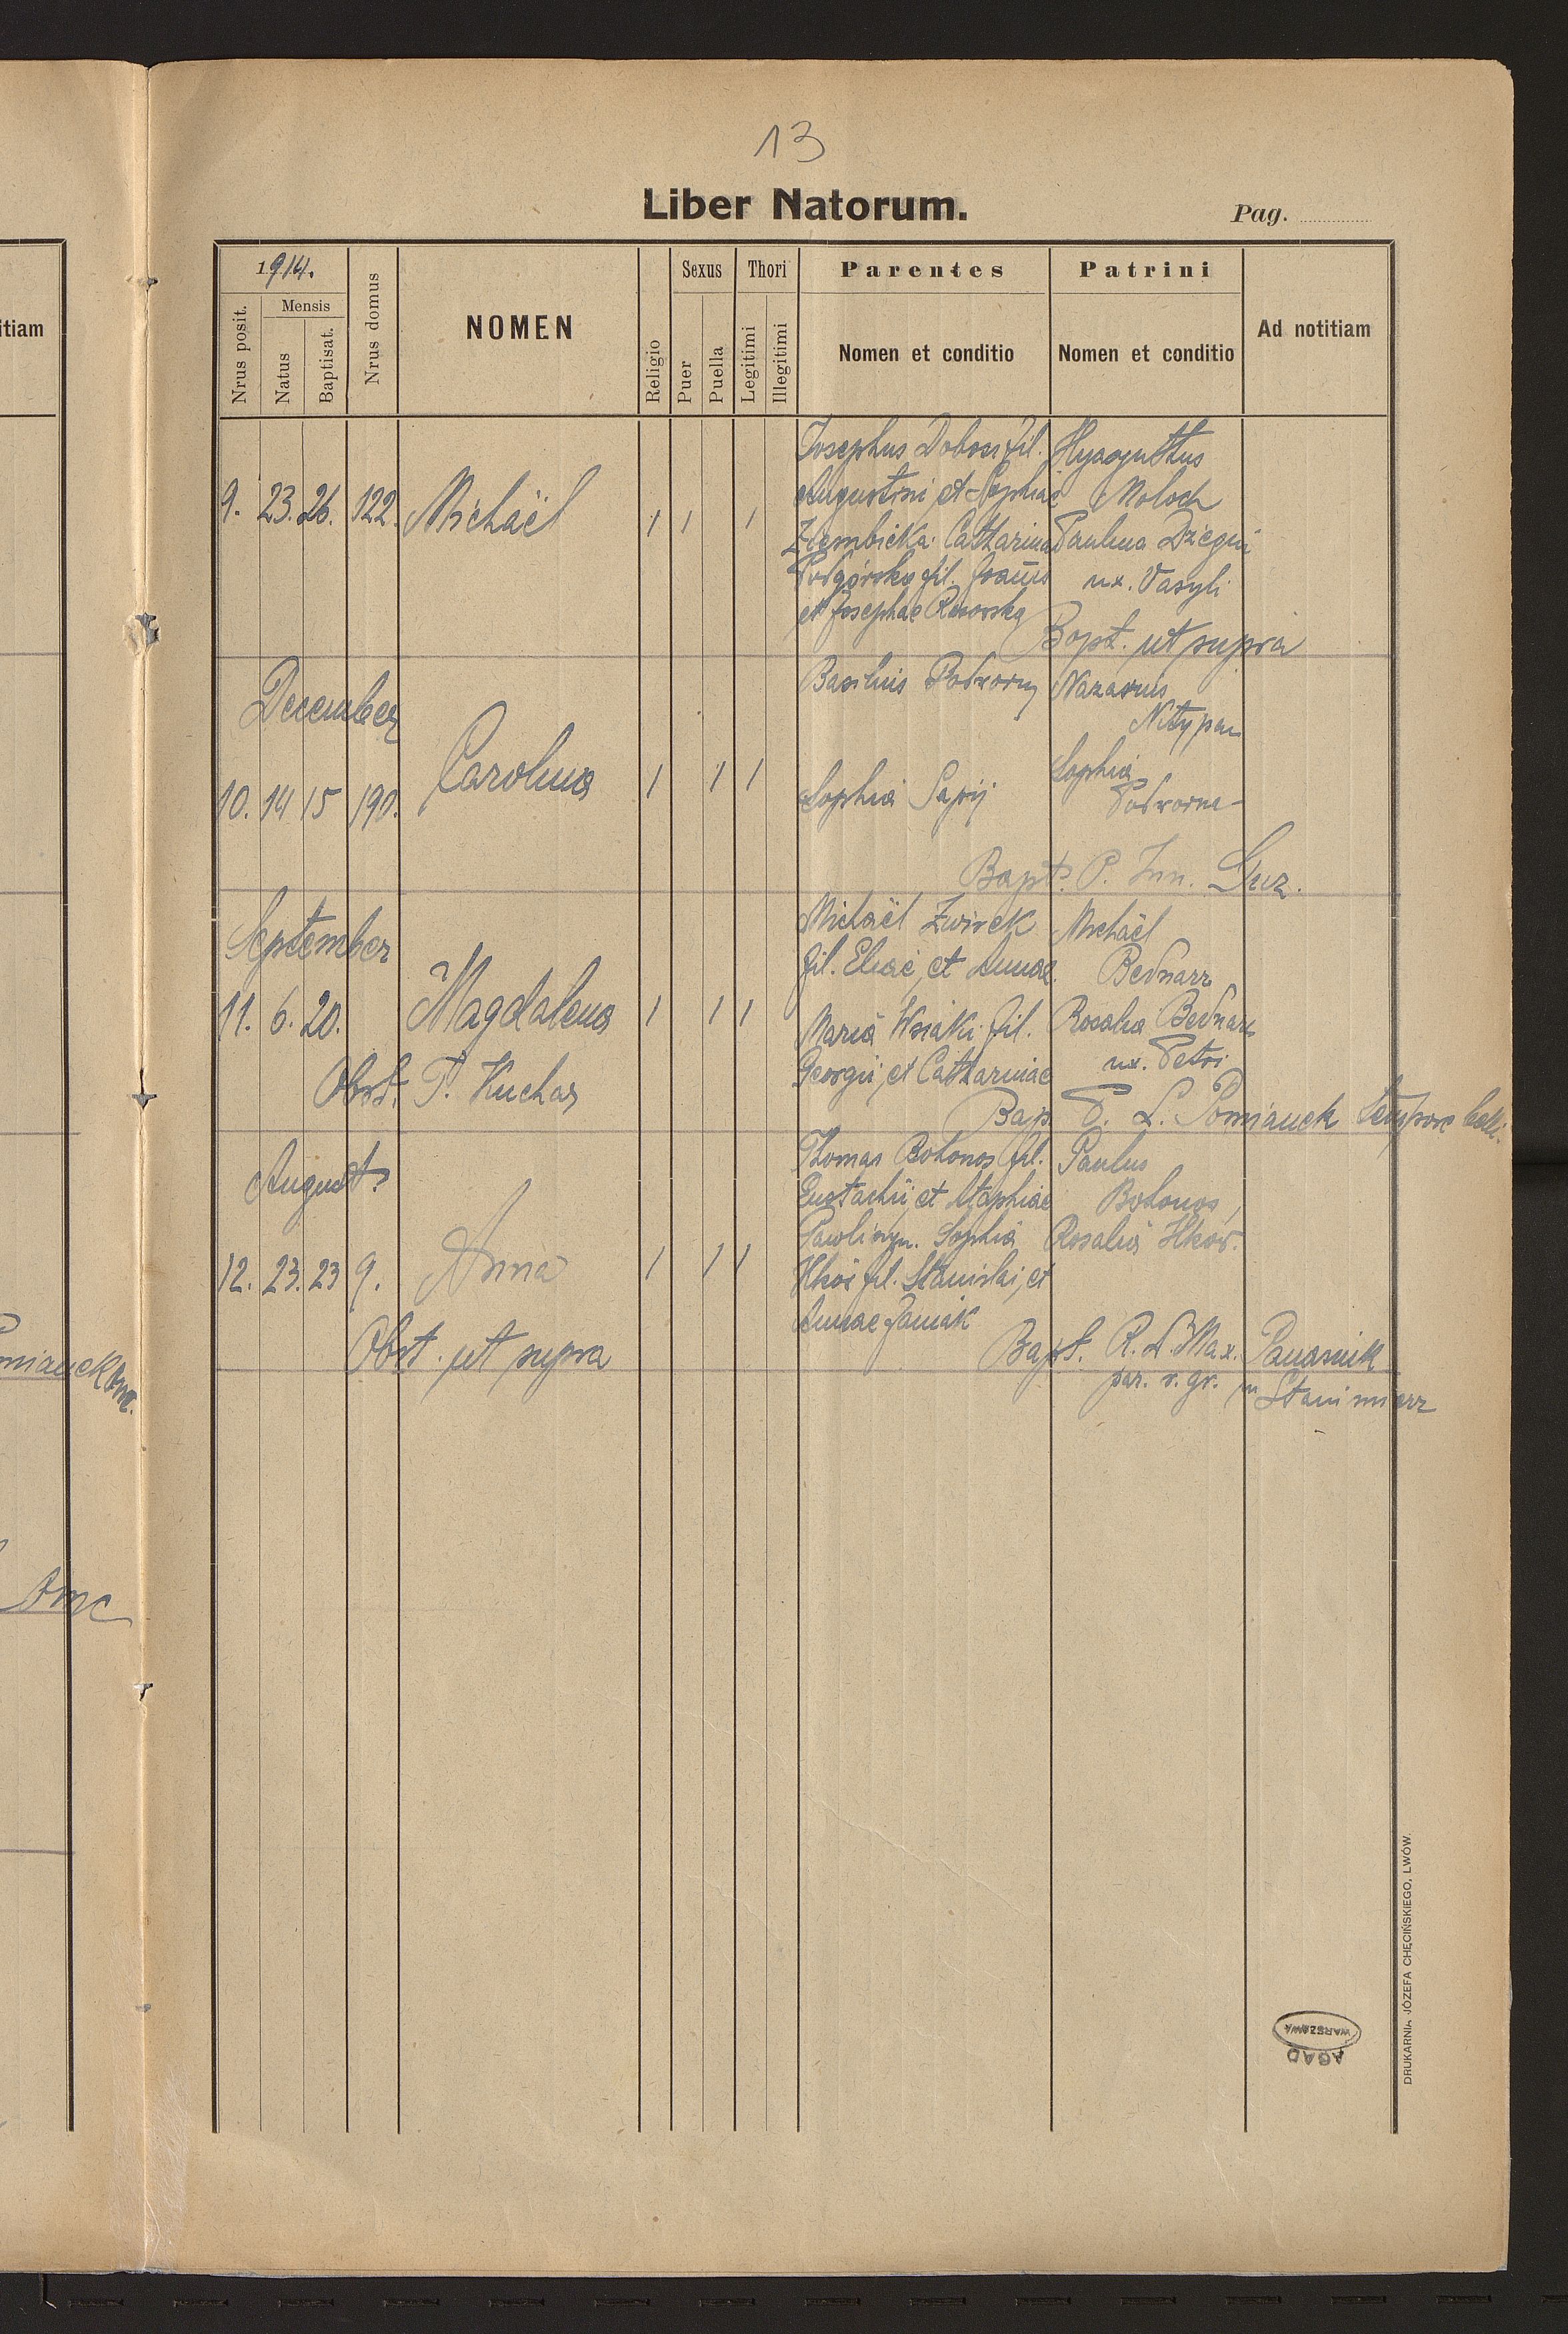 13
Liber Natorum.
Pag.
1914.
Nrus posit.
Mensis
Natus
Baptisat.
Nrus domus
NOMEN
Religio
Sexus
Puer
Puella
Thori
Legitimi
Illegitimi
Parentes
Nomen et conditio
Patrini
Nomen et conditio
Ad notitiam
itiam
9. 23. 26. 122. Michaël 1 1 1
Josephus Dobosz fil.
Augustini et Sophiae
Ziembicka. Catharina
Podgórska fil. Joannis
et Josephae
Hyacynthus
Moloch
Paulina
ux. Vasyli
Bapt. ut supra
December
10. 14 15 190. Carolina 1 1 1
Basilius Podworny
Sophia Sapij
Nazarius
Nitypan
Sophia
Podworna
Bapt. P. Inn. Guz.
September
11. 6. 20. Magdalena 1 1 1
Obst. T. Kuchar
Michaël Zwirek
fil. Eliae, et Annae.
Maria Wsiaki fil.
Georgii, et Catharinae
Michaël
Bednarz
Rosalia Bednarz
ux. Petri
Bap. P. L. Pomianek tempore belli.
August.
12. 23. 23 9. Anna 1 1 1
Obst. ut supra
Thomas Bohonos fil.
Eustachii, et Stephiae
Sophia
fil. Stanislai, et
Annae Janiak
Paulus
Bohonos,
Rosalia
Bapt. R. L. Max. Panasnik
par. r. gr. in Stanimierz
DRUKARNIA JÓZEFA CHĘCIŃSKIEGO, LWÓW.
AGAD
WARSZAWA